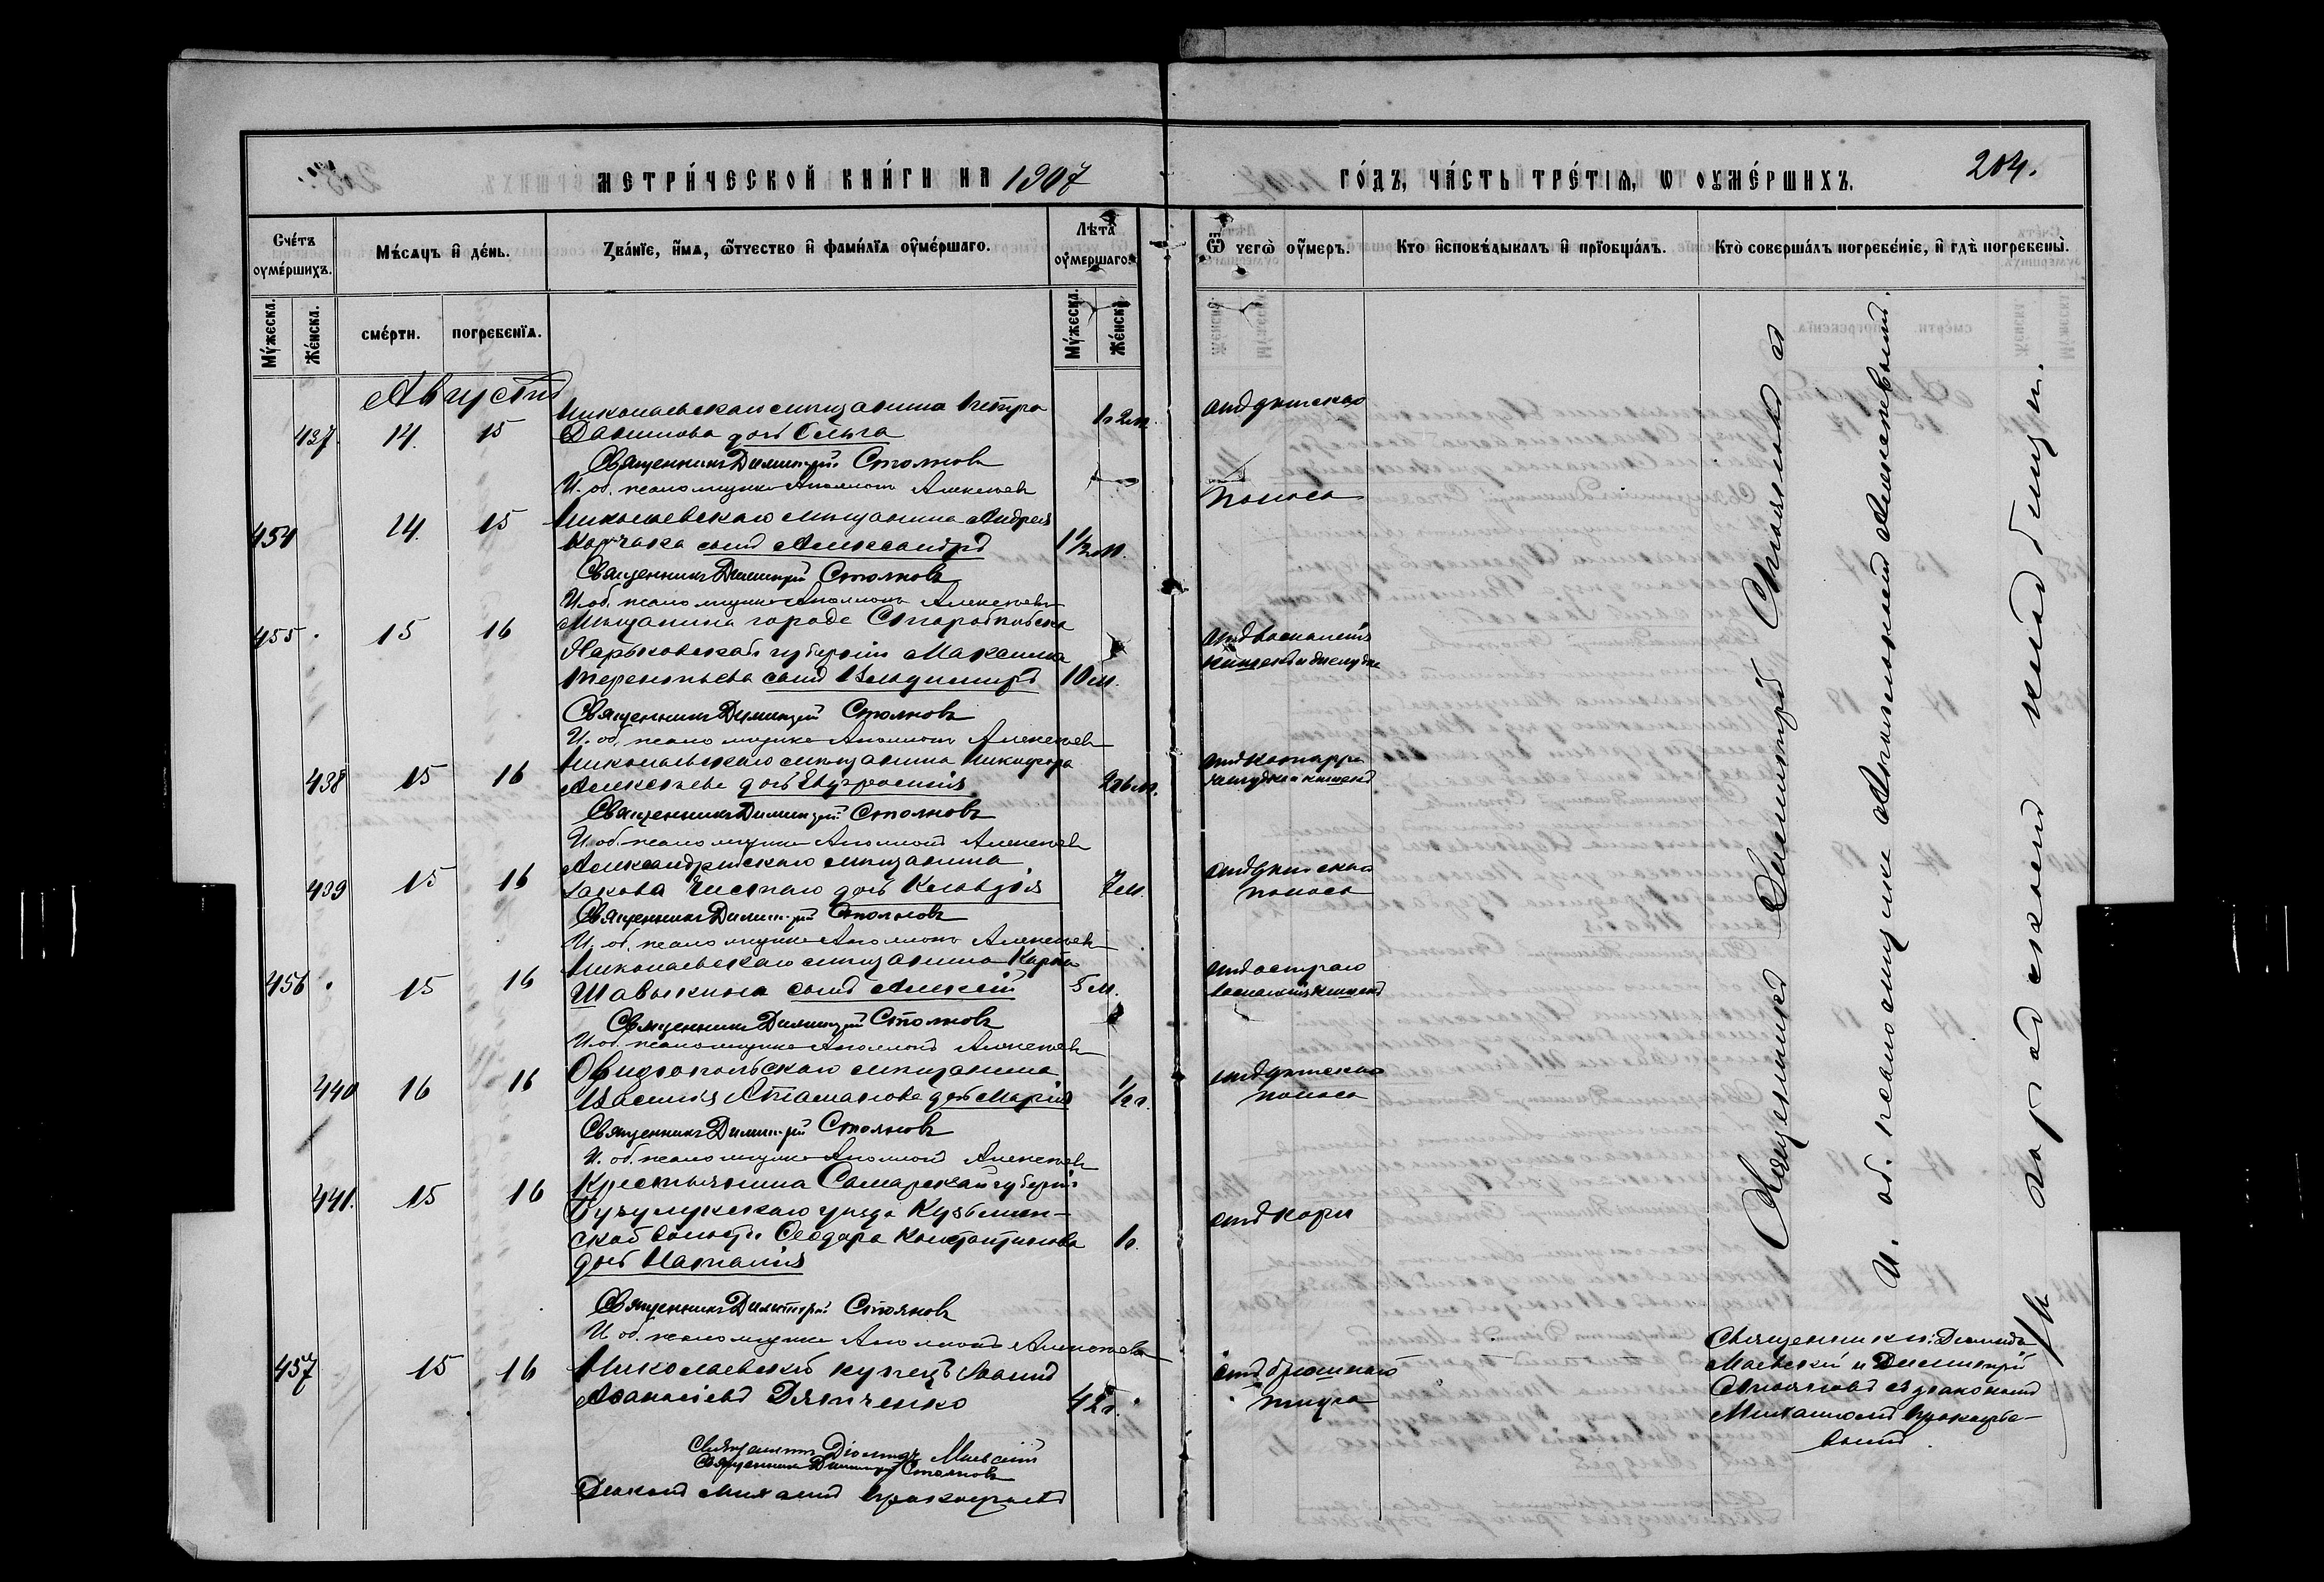 МЕТРИ́ЧЕСКОЙ КНИ́ГИ НА 1907
ГО́ДЪ, ЧА́СТЬ ТРЕ́ТІѦ, Ѡ ОУМЕ́РШИХЪ.
204.
Сче́тъ оумершихъ.
Мѣ́сѧцъ и де́нь.
Зва́нїе, и́мѧ, ѿтчество и фами́лїѧ оуме́ршаго.
Лѣта оумершаго.
Ѿ чегѡ̀ оу́меръ.
Кто̀ исповѣ́дывалъ и прїобща́лъ.
Кто̀ соверша́лъ погребе́нїе, и гдѣ̀ погребены̀.
Му́жеска.
Же́нска.
сме́рти.
погребенїѧ.
Му́жеска.
Же́нска.
Августъ
437. 14. 15
Николаевскаго мѣщанина Петра
Данилова дочь Ольга
1 г. 2 м.
отъ дѣтскаго
поноса
Священникъ Димитрій Стояновъ
И. об. псаломщика Аполлонъ Алексѣевъ
454 14. 15
Николаевскаго мѣщанина Андрея
Корчака сынъ Александръ
1 1/2 м.
Священникъ Димитрій Стояновъ
И. об. псаломщика Аполлонъ Алексѣевъ
455. 15 16
Мѣщанина города Старобѣльска
Харьковской губерніи Максима
Терентьева сынъ Владимиръ
10 м.
отъ воспаленія
кишекъ и желудка
Священникъ Димитрій Стояновъ
И. об. псаломщика Аполлонъ Алексѣевъ
438 15 16
Николаевскаго мѣщанина Никифора
Алексѣева дочь Евфросинія
2 г. 6 м.
отъ катарра
желудка и кишекъ
Священникъ Димитрій Стояновъ
И. об. псаломщика Аполлонъ Алексѣевъ
439 15 16
Александрійскаго мѣщанина
Іакова Чистаго дочь Клавдія
7 м.
отъ дѣтскаго
поноса
Священникъ Димитрій Стояновъ
И. об. псаломщика Аполлонъ Алексѣевъ
456. 15 16
Николаевскаго мѣщанина Карпа
Шавыкина сынъ Алексѣй
5 м.
отъ остраго
воспаленія кишекъ
Священникъ Димитрій Стояновъ
И. об. псаломщика Аполлонъ Алексѣевъ
440 16 16
Овидіопольскаго мѣщанина
Василія Атаманова дочь Марія
1/2 г.
отъ дѣтскаго
поноса
Священникъ Димитрій Стояновъ
И. об. псаломщика Аполлонъ Алексѣевъ
441. 15 16
Крестьянина Самарской губерніи
Бузулукскаго уѣзда Кузьмин-
ской волости Ѳеодора Константинова
дочь Наталія
1 г.
отъ кори
Священникъ Димитрій Стояновъ
И. об. псаломщика Аполлонъ Алексѣевъ
457 15 16
Николаевскій купецъ Іоаннъ
Аѳанасіевъ Дятченко
42 г.
отъ брюшного
тифа
Священники: Діомидъ
Маевскій и Димитрій
Стояновъ съ діакономъ
Михаиломъ
Священникъ Діомидъ Маевскій
Священникъ Димитрій Стояновъ
Діаконъ Михаилъ
Священникъ Димитрій Стояновъ съ
и. об. псаломщика Аполлономъ Алексѣевымъ.
На городскомъ кладбищѣ.